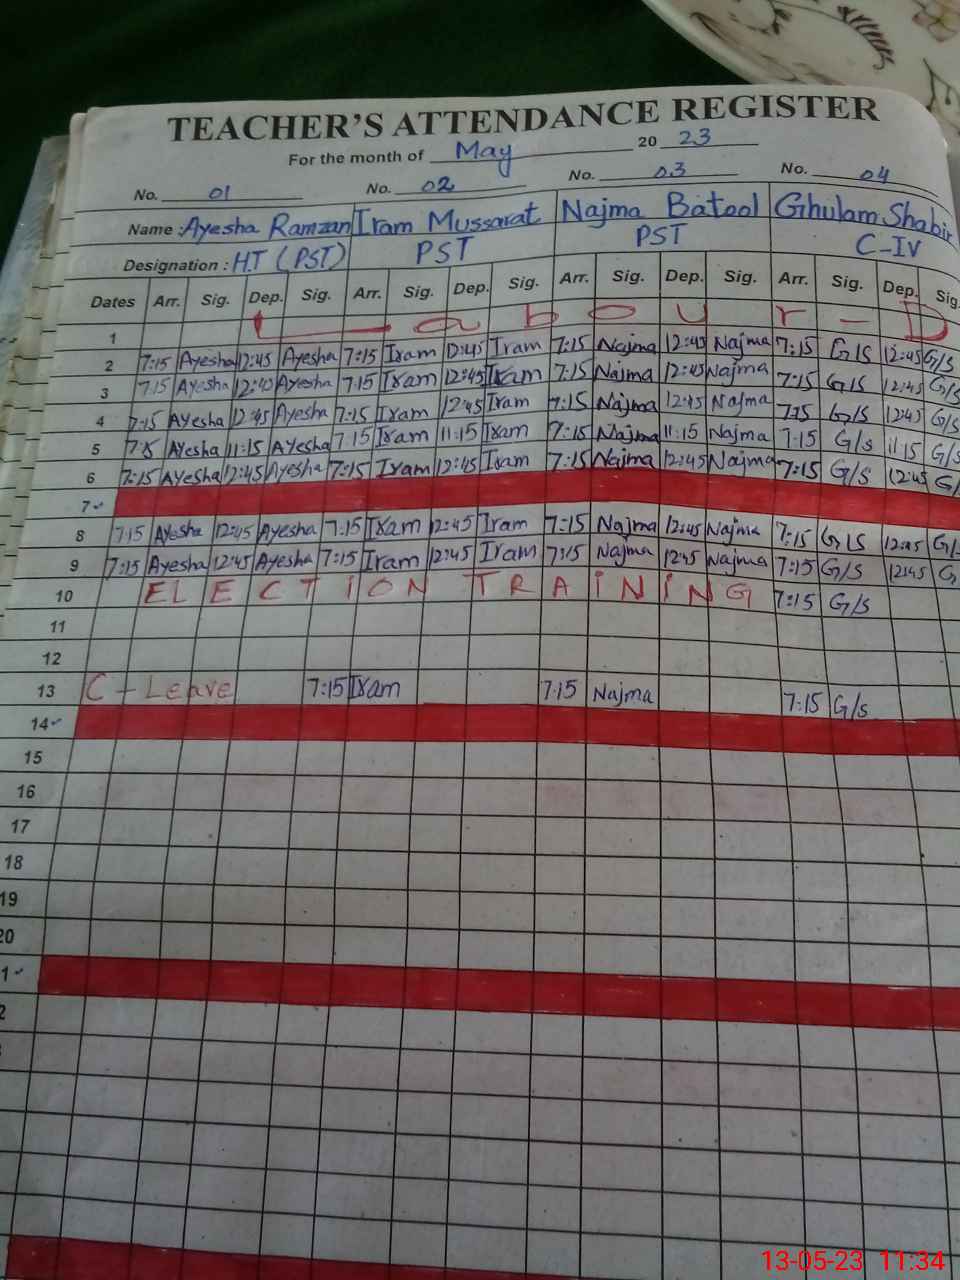 TEACHER'S ATTENDANCE REGISTER
For the month of May 20 23
No. 01 No. 02 No. 03 No. 04
Name : Ayesha Ramzan Iram Mussarat Najma Batool Ghulam Shabir
Designation : H.T (PST) PST PST C-IV
Dates Arr. Sig. Dep. Sig. Arr. Sig. Dep. Sig. Arr. Sig. Dep. Sig. Arr. Sig. Dep. Sig.
1 L a b o u r - D
2 7:15 Ayesha 12:45 Ayesha 7:15 Iram 12:45 Iram 7:15 Najma 12:45 Najma 7:15 G/S 12:45 G/S
3 7:15 Ayesha 12:45 Ayesha 7:15 Iram 12:45 Iram 7:15 Najma 12:45 Najma 7:15 G/S 12:45 G/S
4 7:15 Ayesha 12:45 Ayesha 7:15 Iram 12:45 Iram 7:15 Najma 12:45 Najma 7:15 G/S 12:45 G/S
5 Ayesha 11:15 Ayesha 7:15 Iram 11:15 Iram 7:15 Najma 11:15 Najma 7:15 G/S 11:15 G/S
6 7:15 Ayesha 12:45 Ayesha 7:15 Iram 12:45 Iram 7:15 Najma 12:45 Najma 7:15 G/S 12:45 G/
7
8 7:15 Ayesha 12:45 Ayesha 7:15 Iram 12:45 Iram 7:15 Najma 12:45 Najma 7:15 G/S 12:45 G/
9 7:15 Ayesha 12:45 Ayesha 7:15 Iram 12:45 Iram 7:15 Najma 12:45 Najma 7:15 G/S 12:45 G
10 ELECTION TRAINING 7:15 G/S
11
12
13 C - Leave 7:15 Iram 7:15 Najma 7:15 G/S
14
15
16
17
18
19
20
1
2
13-05-23 11:34